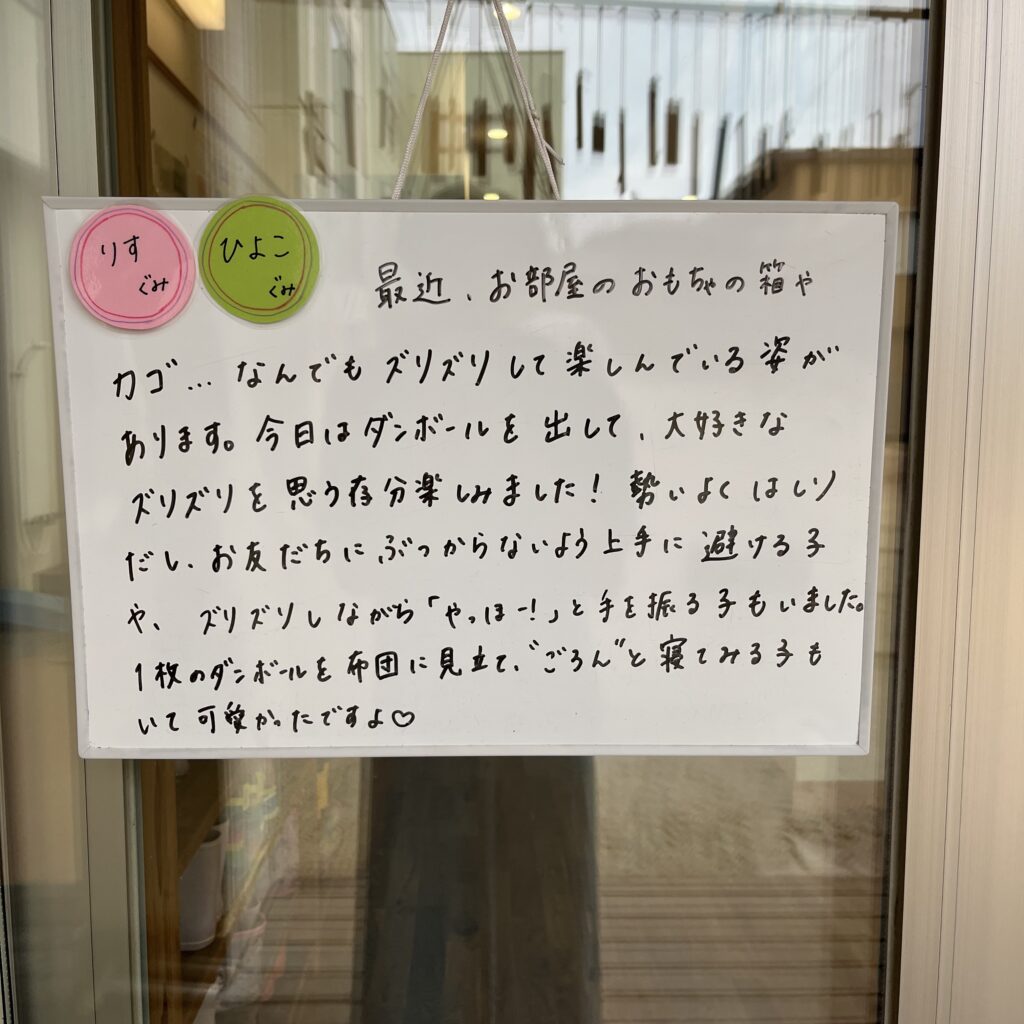 りす
ぐみ
ひよこ
ぐみ
最近、お部屋のおもちゃの箱や
カゴ…なんでもズリズリして楽しんでいる姿が
あります。今日はダンボールを出して、大好きな
ズリズリを思う存分楽しみました!勢いよくはしり
だし、お友だちにぶつからないよう上手に避ける子
や、ズリズリしながら「やっほー!」と手を振る子もいました。
1枚のダンボールを布団に見立て、"ごろん"と寝てみる子も
いて可愛かったですよ♡